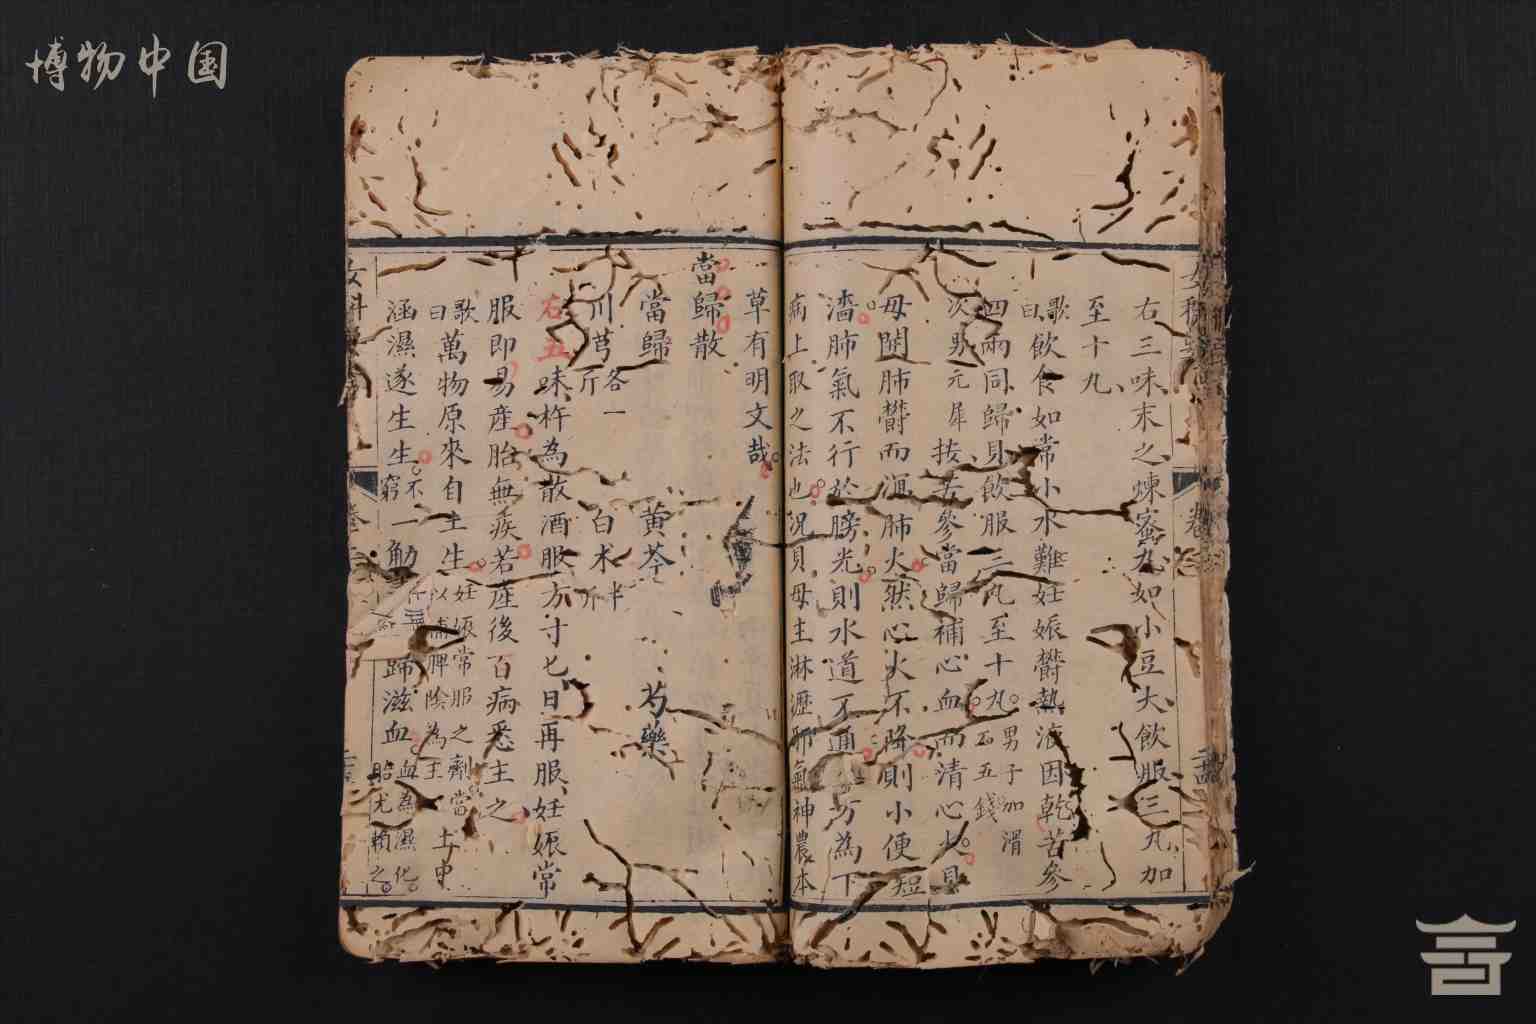 博物中国
右三味末之煉蜜丸如小豆大飲服三丸加
至十丸
歌曰飲食如常小水難妊娠欝熱液因乾苦參
四兩同歸貝飲服三丸至十丸男子加滑石五錢
次男元犀按苦參當歸補心血而清心火貝
母開肺欝而瀉肺火然心火不降則小便短
濇肺氣不行於膀光則水道不通此方為下
病上取之法也況貝母主淋瀝邪氣神農本
草有明文哉
當歸散
當歸 黄芩 芍藥
川芎各一斤 白术半斤
右五味杵為散酒服方寸匕日再服妊娠常
服即易産胎無疾若産後百病悉主之
歌曰萬物原來自生生妊娠常服之劑當以補脾陰為主土中
涵濕遂生生不窮一斛 歸滋血血為濕化胎尤賴之
女科